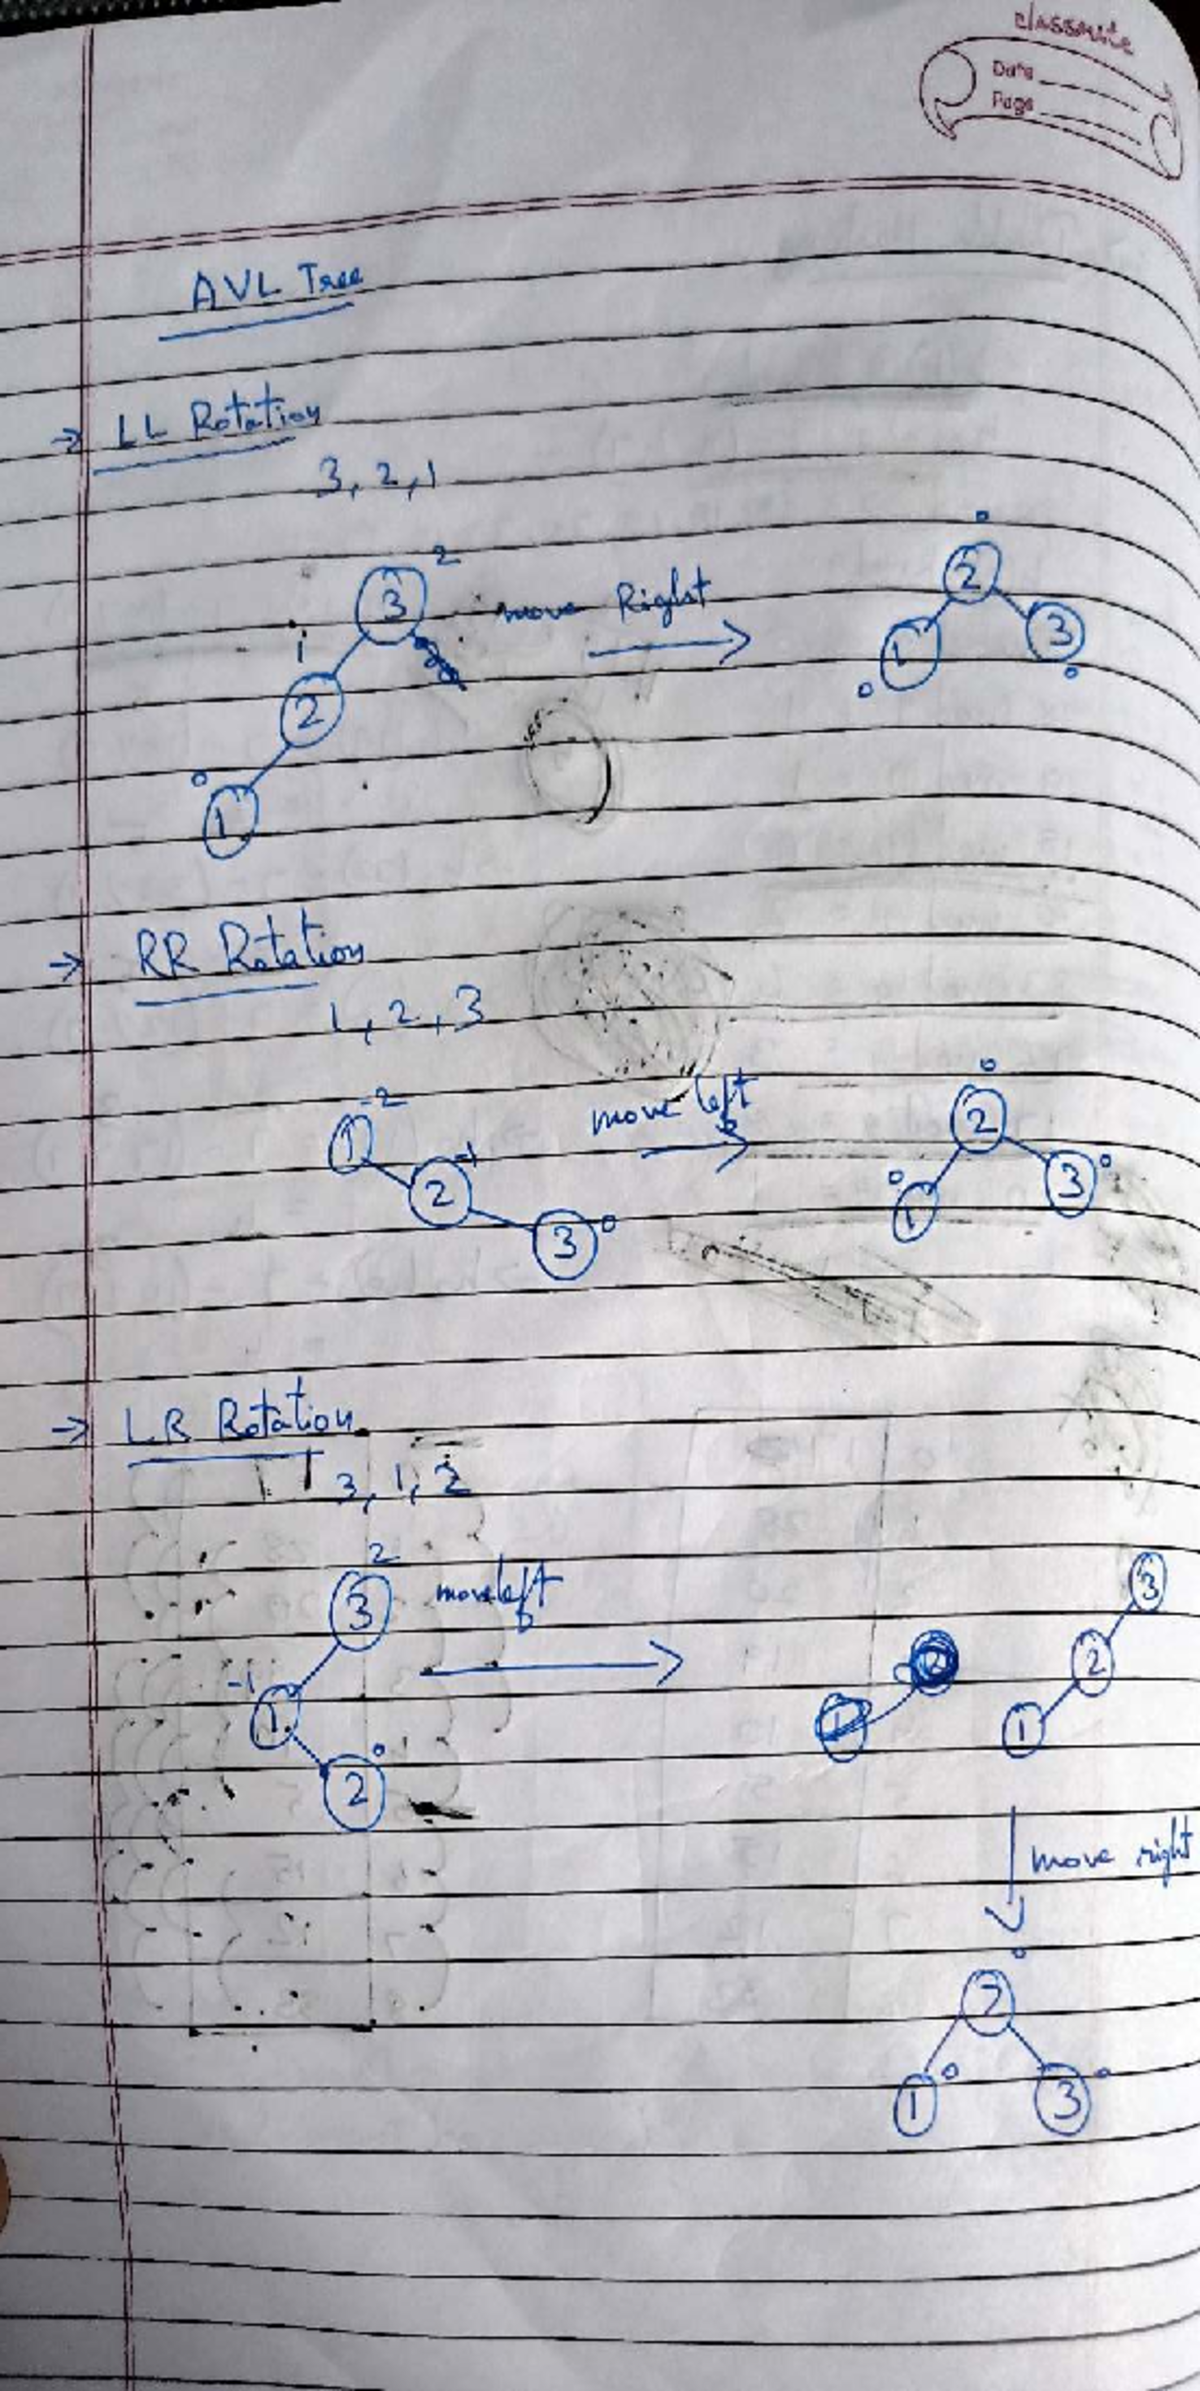 classmate
Date
Page
AVL Tree
→ LL Rotation
3, 2, 1
3 2
move Right
1
2
0
1
0
2
1
3
0
0
→ RR Rotation
1, 2, 3
1 -2
2 -1
3 0
move left
0
2
0
1
3 0
→ LR Rotation
3, 1, 2
2
3
-1
1
2 0
move left
3
2
1
move right
0
2
1 0
3 0